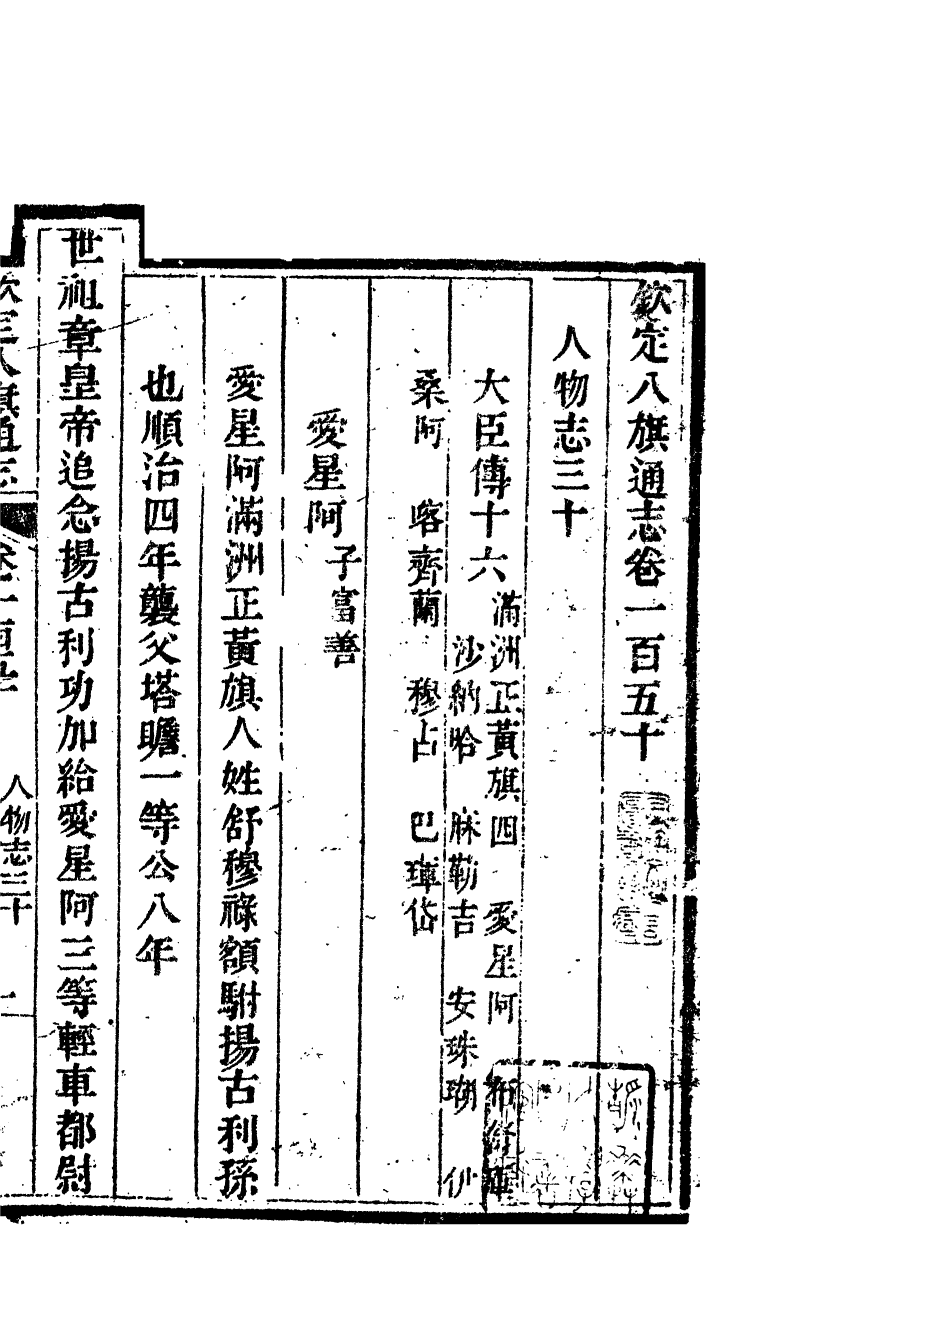 欽定八旗通志卷一百五十
人物志三十
大臣傳十六 滿洲正黃旗四 愛星阿 布舒庫
沙納哈 麻勒吉 安珠瑚 伊
桑阿 喀齊蘭 穆占 巴琿岱
愛星阿 子富善
愛星阿滿洲正黃旗人姓舒穆祿額駙揚古利孫
也順治四年襲父塔瞻一等公八年
世祖章皇帝追念揚古利功加給愛星阿三等輕車都尉
欽定八旗通志 卷一百五十 人物志三十 一